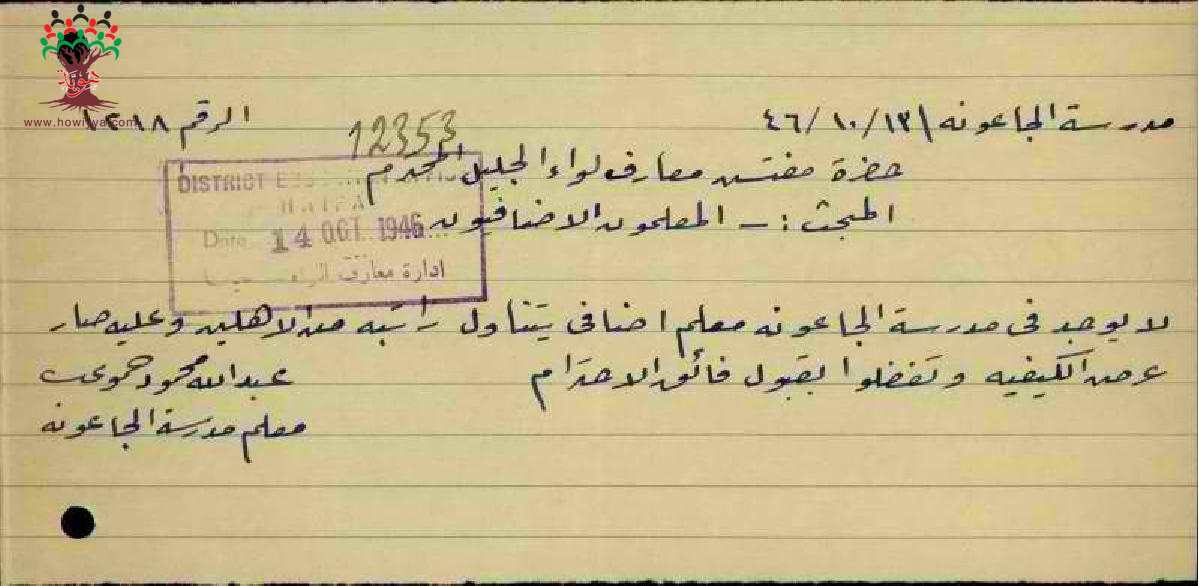 مدرسة الجاعونه ١٣/١٠/٤٦
الرقم ١٢١٨
12353
حضرة مفتش معارف لواء الجليل المحترم
المبحث :- المعلمون الاضافيون
DISTRICT
HAIFA
Date 14 OCT 1946
ادارة معارف
لا يوجد في مدرسة الجاعونه معلم اضافي يتناول راتبه من الاهلين وعليه صار
عرض الكيفيه وتفضلوا بقبول فائق الاحترام
عبدالله محمود
معلم مدرسة الجاعونه
هويّة
www.howiyya.com